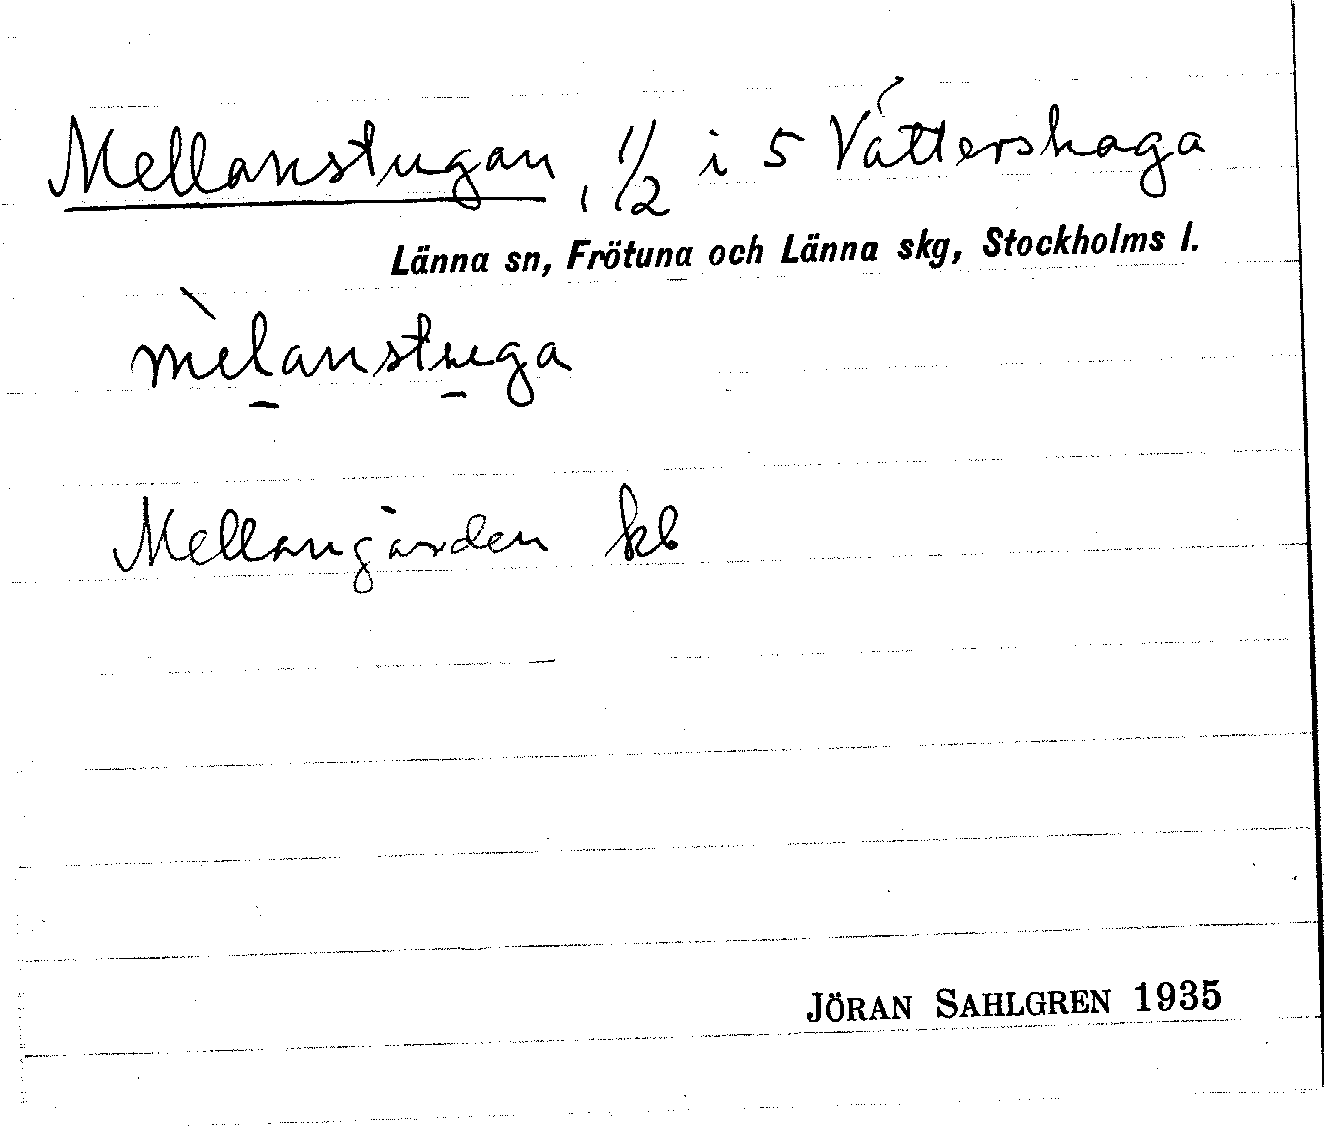 Mellanstugan, 1/2 i 5 Vättershaga
Länna sn, Frötuna och Länna skg, Stockholms l.
mèlanstuga
Mellangården kb
JÖRAN SAHLGREN 1935